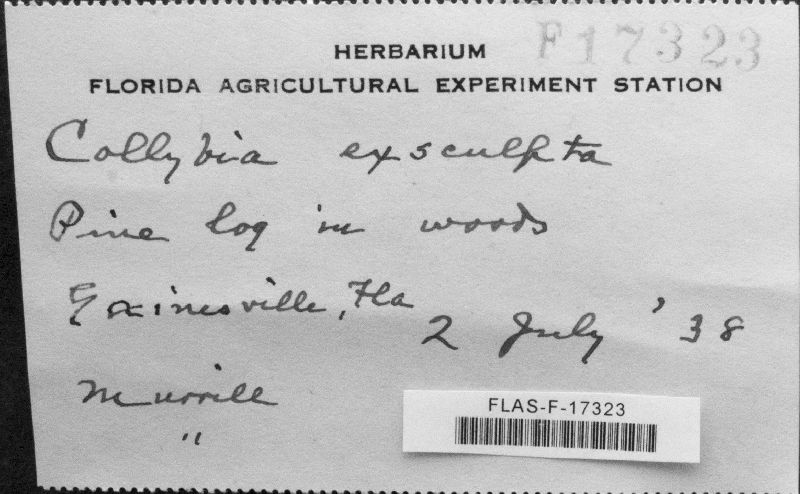 F17323
HERBARIUM
FLORIDA AGRICULTURAL EXPERIMENT STATION
Collybia exsculpta
Pine log in woods
Gainesville, Fla
2 July '38
Murrill
"
FLAS-F-17323